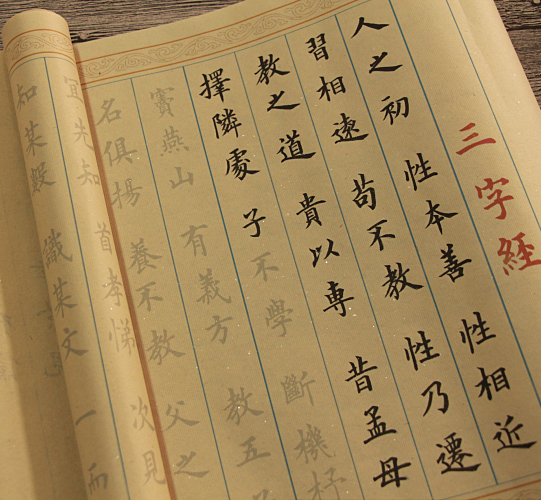 三字經
人之初 性本善 性相近
習相遠 苟不教 性乃遷
教之道 貴以專 昔孟母
擇隣處 子不學 斷機杼
竇燕山 有義方 教五子
名俱揚 養不教 父之
宜先知 首孝悌 次見
知某數 識某文 一而